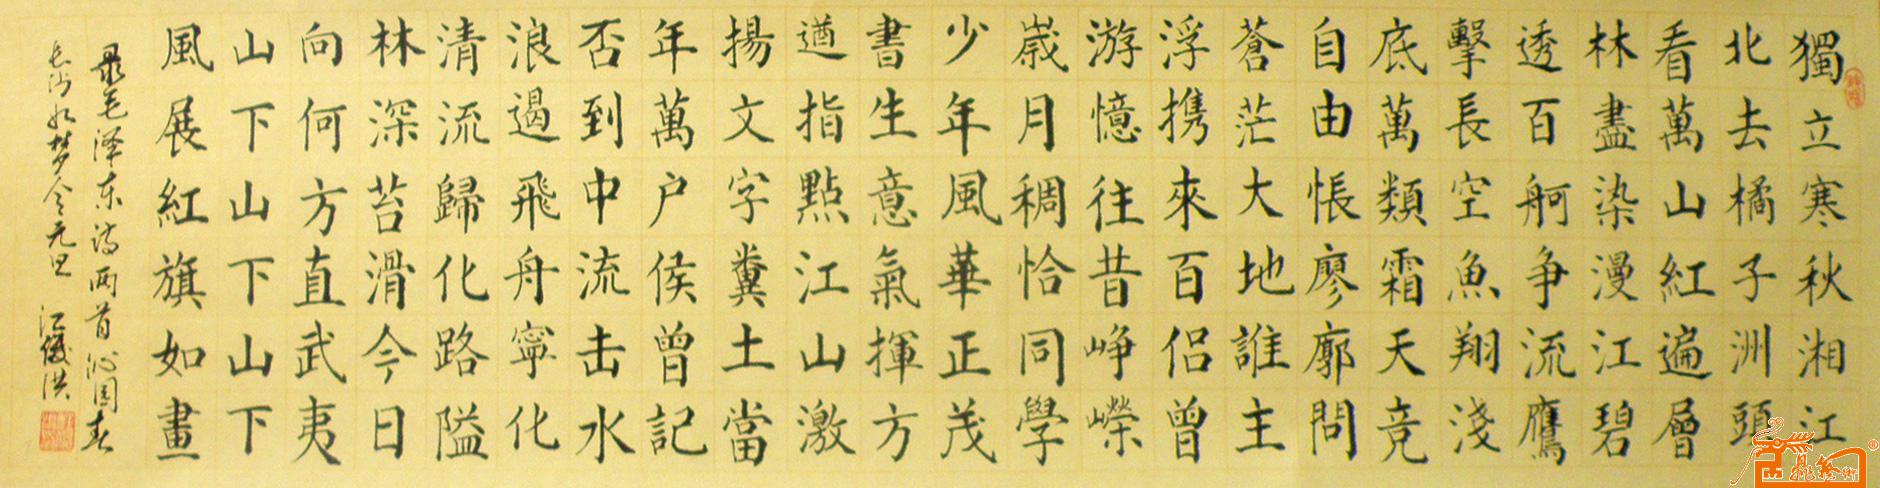 獨立寒秋湘江
北去橘子洲頭
看萬山紅遍層
林盡染漫江碧
透百舸争流鷹
擊長空魚翔淺
底萬類霜天竞
自由悵廖廓問
蒼茫大地誰主
浮携來百侣曾
游憶往昔峥嶸
嵗月稠恰同學
少年風華正茂
書生意氣揮方
遒指點江山激
揚文字糞土當
年萬户侯曾記
否到中流击水
浪遏飛舟寧化
清流歸化路隘
林深苔滑今日
向何方直武夷
山下山下山下
風展紅旗如畫
录毛泽东诗两首沁园春
长沙如梦令元旦 江儀洪